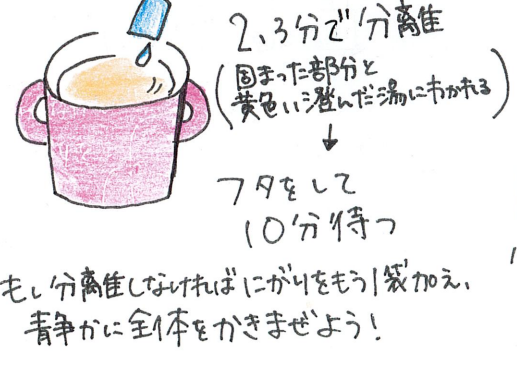 2、3分で分離
(固まった部分と
黄色い澄んだ湯にわかれる)
↓
フタをして
10分待つ
もし分離しなければにがりをもう1袋加え、
静かに全体をかきまぜよう!